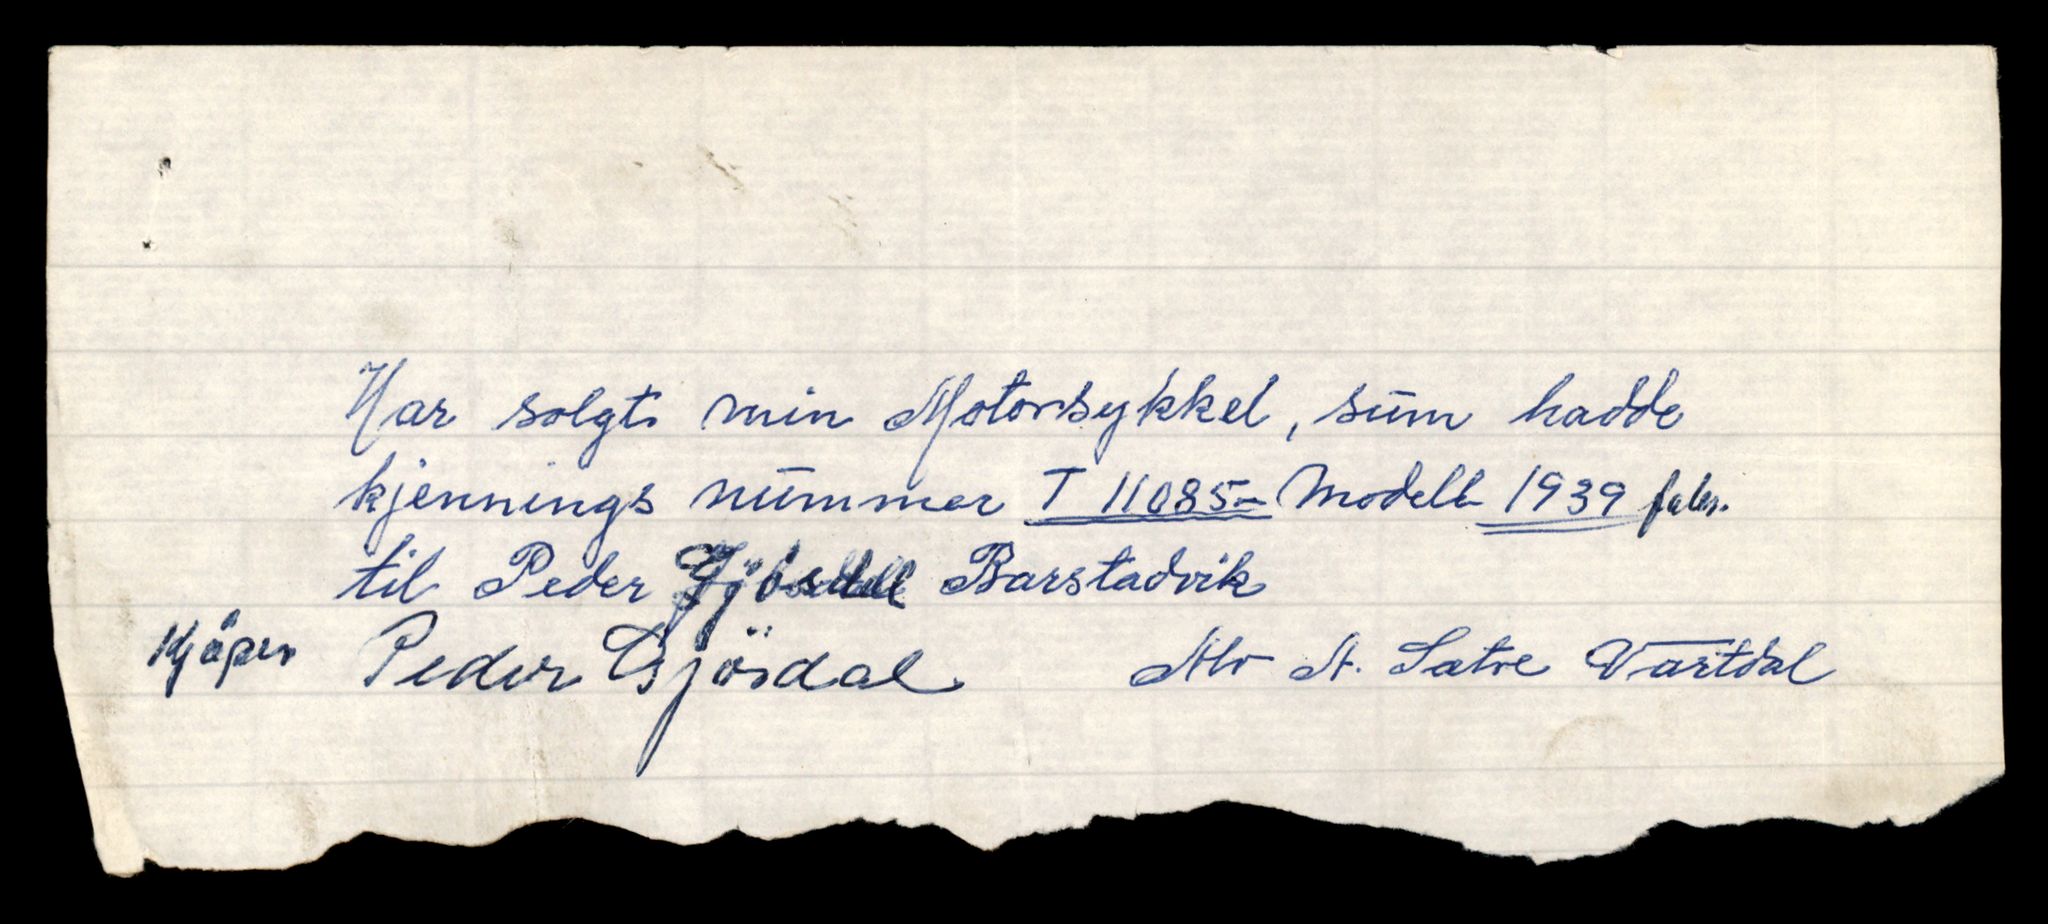 Har solgt min Motorsykkel, sum hadde
kjennings nummer T 11085 - Modell 1939
til Peder Barstadvik
Kjöper Peder Gjösdal Alv A. Satve Vartdal